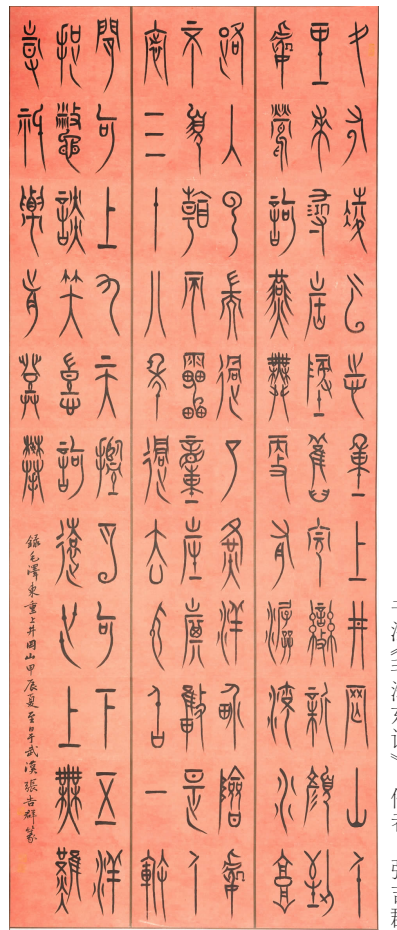 久有凌雲志重上井岡山千
里來尋故地舊貌變新顏到
處鶯歌燕舞更有潺流水高
路入雲端過了黃洋界險處
不須看風雷動旌旗奮是人
寰三十八年過去彈指一揮
間可上九天攬月可下五洋
捉鱉談笑凱歌還世上無難
事祇要肯登攀
錄毛澤東重上井岡山甲辰夏至日于武漢張吉群篆